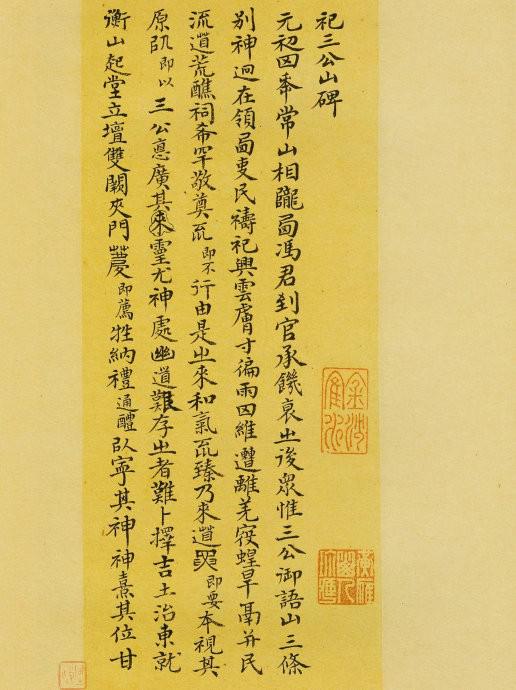 祀三公山碑
元初四奉常山相隴西馮君到官承饑衰之後眾惟三公御語山三條
別神迥在領西吏民禱祀興雲膚寸偏雨四維遭離羌寇蝗旱鬲并民
流道荒醮祠希罕敬奠不即不行由是之來和氣不臻乃來道要即要本視其
原㠯即以三公悳廣其靈尤神處幽道艱存之者難卜擇吉土治東就
衡山起堂立壇雙闕夾門薦即薦牲納禮通醴㠯寧其神神熹其位甘